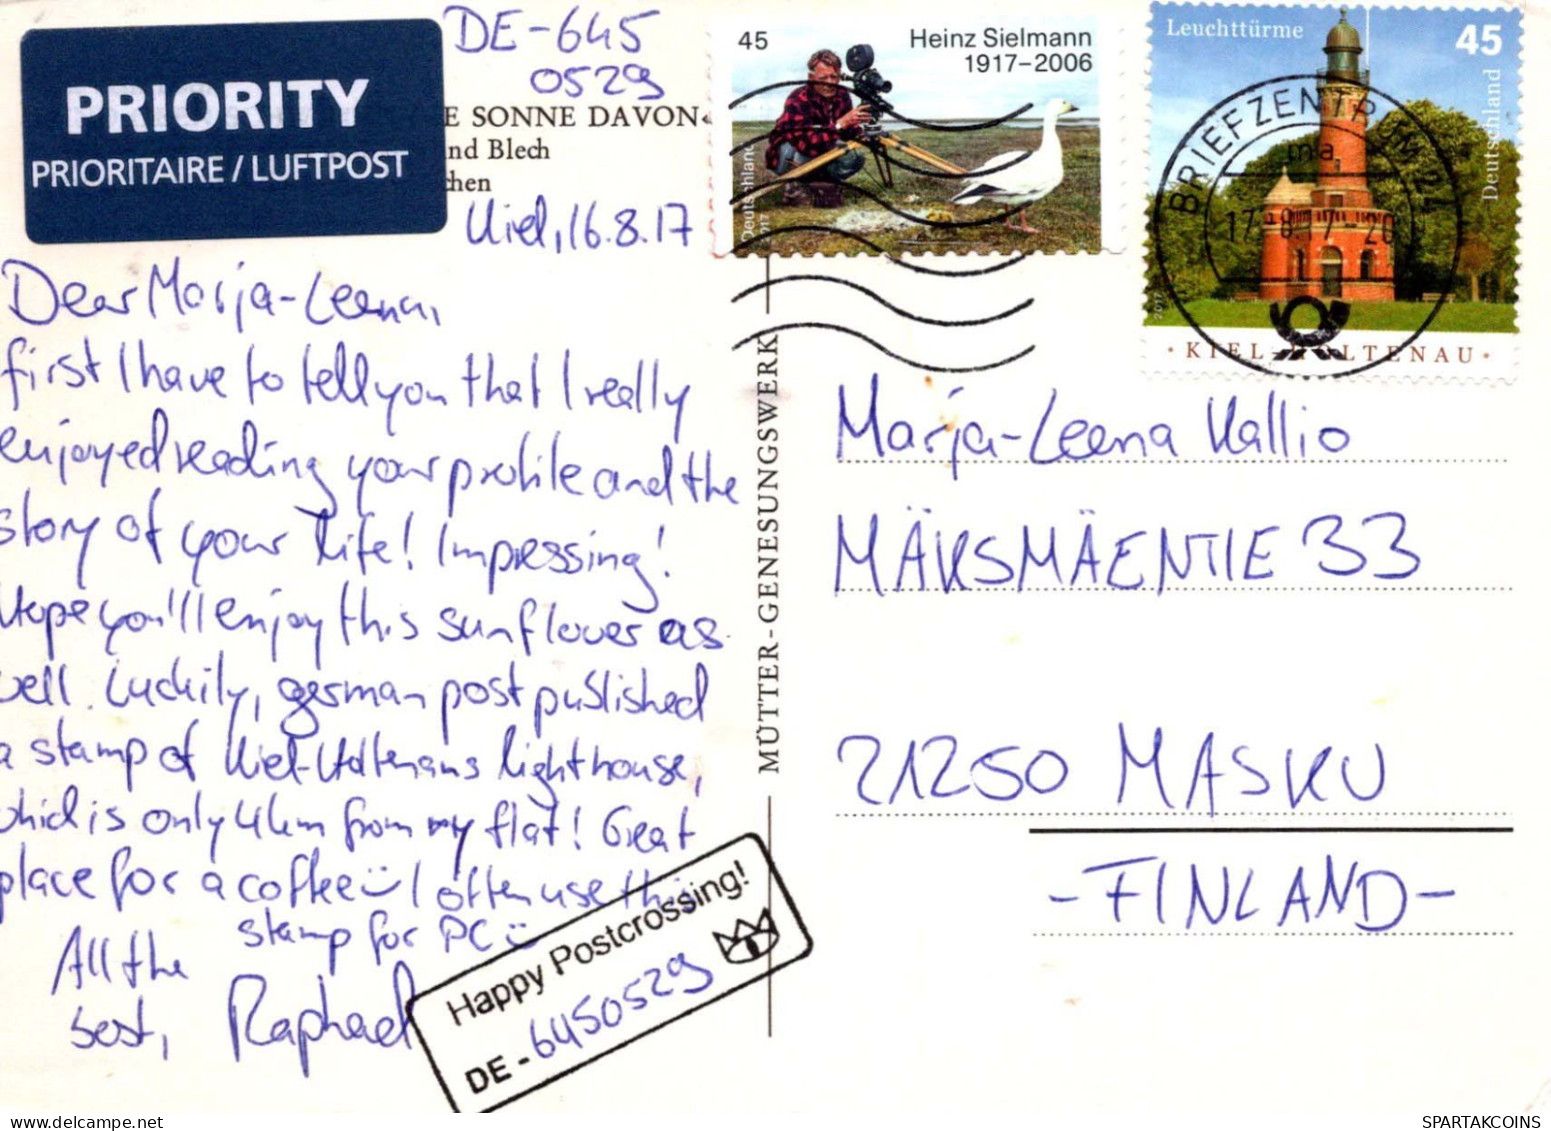 PRIORITY
PRIORITAIRE / LUFTPOST
DE-645
0529
E SONNE DAVON
nd Blech
chen
Kiel, 16.8.17
Dear Marja-Leena,
first I have to tell you that I really
enjoyed reading your profile and the
story of your life! Impressing!
Hope you'll enjoy this sunflower as
well. Luckily, german post published
a stamp of Kiel-Holtenaus lighthouse,
which is only 4km from my flat! Great
place for a coffee I often use this
stamp for PC
All the
best,
Raphael
Happy Postcrossing!
DE-6450529
MÜTTER-GENESUNGSWERK
45
Heinz Sielmann
1917–2006
Deutschland
2017
Leuchttürme
45
Deutschland
2017
· KIEL-HOLTENAU ·
BRIEFZENTRUM
Marja-Leena Kallio
MÄKSMÄENTIE 33
21250 MASKU
-FINLAND-
SPARTAKCOINS